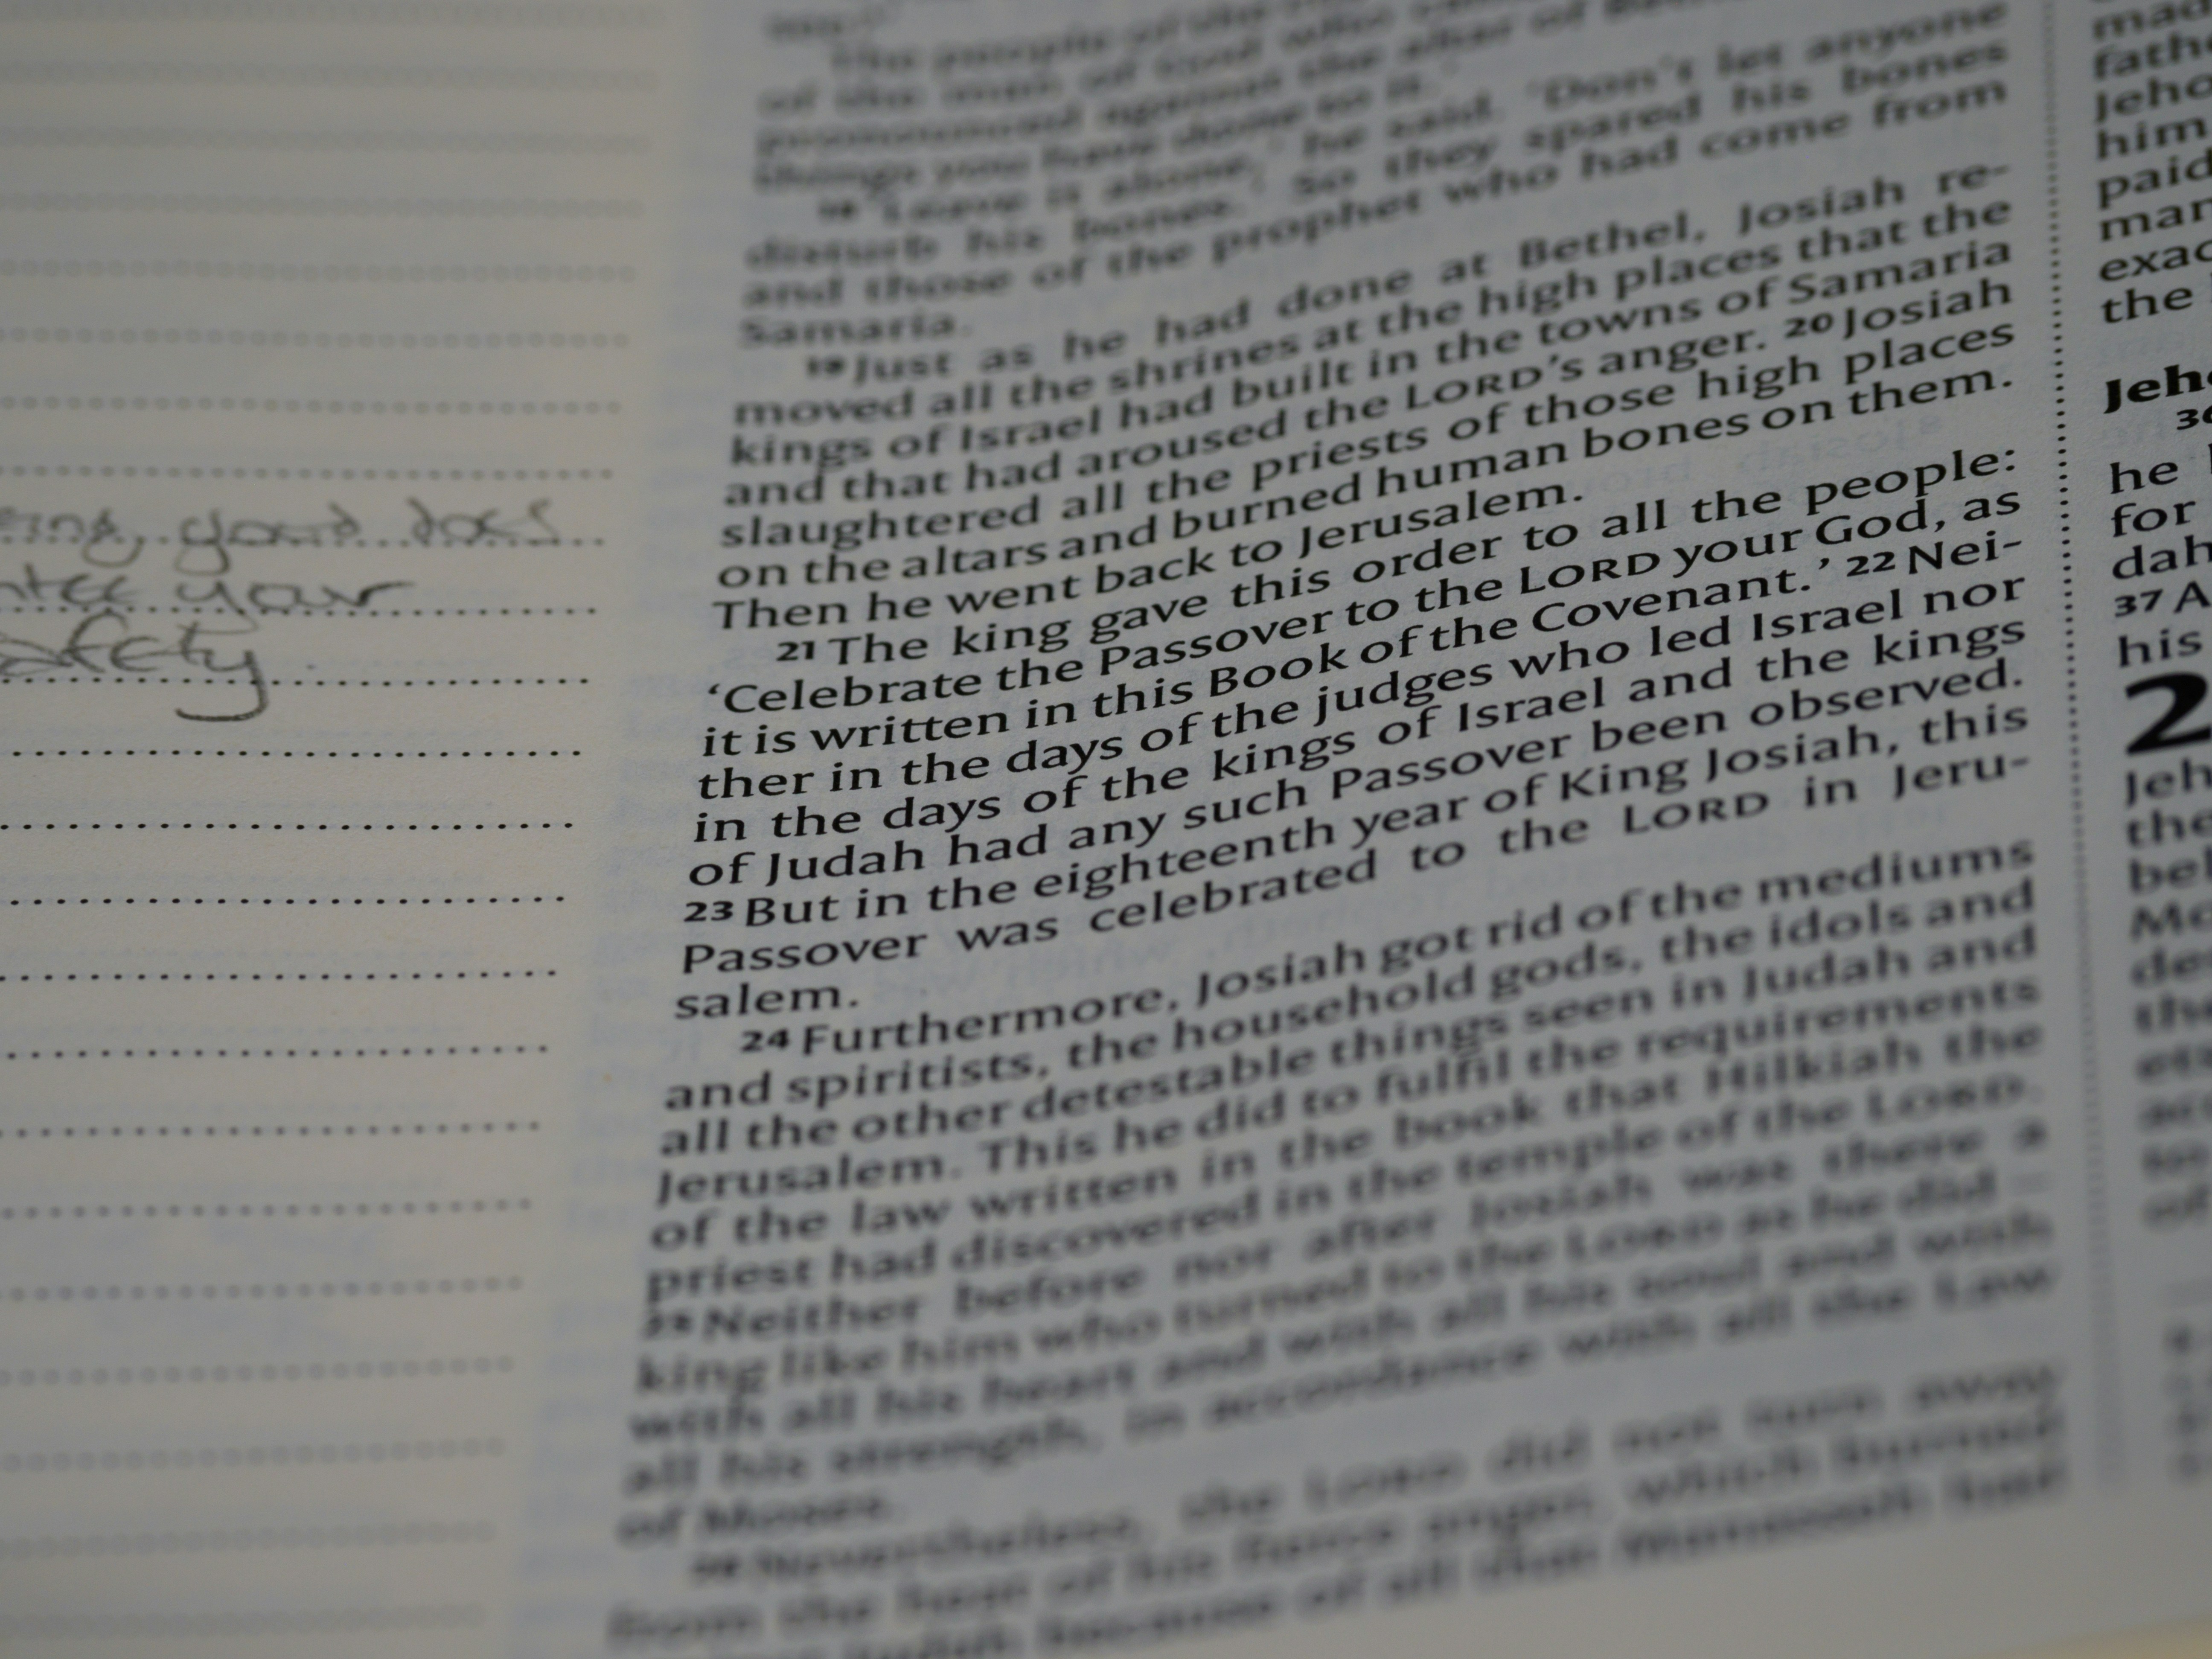 good does
your
afety
of the man of God who
pronounced against the altar of
things you have done to it.'
18 'Leave it alone,' he said. 'Don't let anyone
disturb his bones.' So they spared his bones
and those of the prophet who had come from
Samaria.
19 Just as he had done at Bethel, Josiah re-
moved all the shrines at the high places that the
kings of Israel had built in the towns of Samaria
and that had aroused the LORD's anger. 20 Josiah
slaughtered all the priests of those high places
on the altars and burned human bones on them.
Then he went back to Jerusalem.
21 The king gave this order to all the people:
'Celebrate the Passover to the LORD your God, as
it is written in this Book of the Covenant.' 22 Nei-
ther in the days of the judges who led Israel nor
in the days of the kings of Israel and the kings
of Judah had any such Passover been observed.
23 But in the eighteenth year of King Josiah, this
Passover was celebrated to the LORD in Jeru-
salem.
24 Furthermore, Josiah got rid of the mediums
and spiritists, the household gods, the idols and
all the other detestable things seen in Judah and
Jerusalem. This he did to fulfil the requirements
of the law written in the book that Hilkiah the
priest had discovered in the temple of the LORD.
25 Neither before nor after Josiah was there a
king like him who turned to the LORD as he did –
with all his heart and with all his soul and with
all his strength, in accordance with all the Law
of Moses.
26 Nevertheless, the LORD did not turn away
from the heat of his fierce anger, which burned
Judah because of all that Manasseh had
made
fath
Jeho
him
paid
man
exac
the
Jeh
36
he
for
dah
37 A
his
2
Jeh
the
bel
Me
de
the